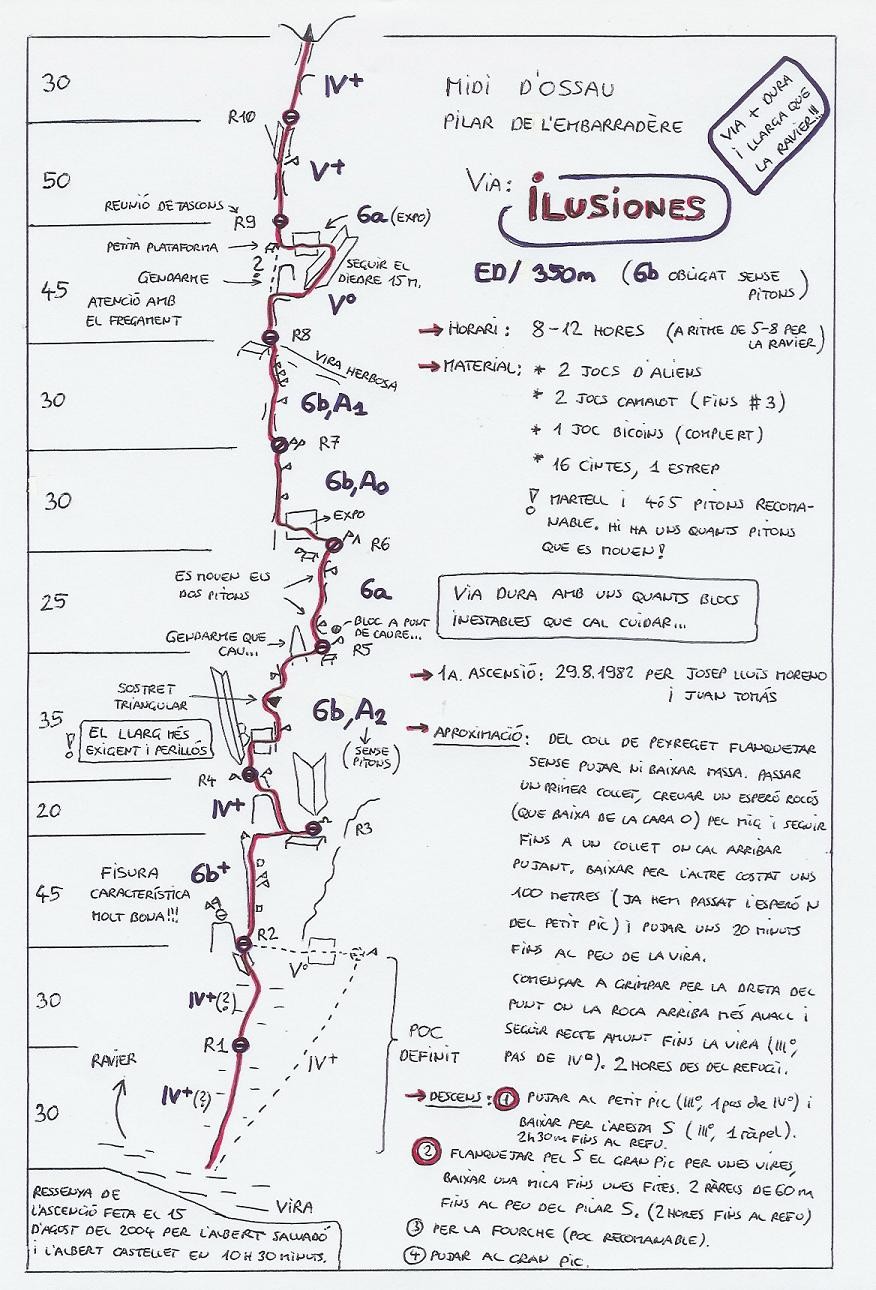 MIDI D'OSSAU
PILAR DE L'EMBARRADÈRE
VIA + DURA
I LLARGA QUE
LA RAVIER!!!
VIA: ILUSIONES
ED/ 350m (6b OBLIGAT SENSE
PITONS)
→ HORARI: 8-12 HORES (A RITME DE 5-8 PER
LA RAVIER)
→ MATERIAL: * 2 JOCS D'ALIENS
* 2 JOCS CAMALOT (FINS #3)
* 1 JOC BICOINS (COMPLERT)
* 16 CINTES, 1 ESTREP
! MARTELL I 4ó5 PITONS RECOMA-
NABLE. HI HA UNS QUANTS PITONS
QUE ES MOUEN!
VIA DURA AMB UNS QUANTS BLOCS
INESTABLES QUE CAL CUIDAR...
→ 1A. ASCENSIÓ: 29.8.1982 PER JOSEP LLUÍS MORENO
I JUAN TOMÁS
→ APROXIMACIÓ: DEL COLL DE PEYREGET FLANQUEJAR
SENSE PUJAR NI BAIXAR MASSA. PASSAR
UN PRIMER COLLET, CREUAR UN ESPERÓ ROCÓS
(QUE BAIXA DE LA CARA O) PEL MIG I SEGUIR
FINS A UN COLLET ON CAL ARRIBAR
PUJANT. BAIXAR PER L'ALTRE COSTAT UNS
100 METRES (JA HEM PASSAT L'ESPERÓ N
DEL PETIT PIC) I PUJAR UNS 20 MINUTS
FINS AL PEU DE LA VIRA.
COMENÇAR A GRIMPAR PER LA DRETA DEL
PUNT ON LA ROCA ARRIBA MÉS AVALL I
SEGUIR RECTE AMUNT FINS LA VIRA (IIIº,
PAS DE IVº). 2 HORES DES DEL REFUGI.
→ DESCENS: 1 PUJAR AL PETIT PIC (IIIº, 1 pas de IVº) I
BAIXAR PER L'ARESTA S (IIIº, 1 ràpel).
2h30m FINS AL REFU.
2 FLANQUEJAR PEL S EL GRAN PIC PER UNES VIRES,
BAIXAR UNA MICA FINS UNES FITES. 2 RÀPELS DE 60m
FINS AL PEU DEL PILAR S. (2 HORES FINS AL REFU)
3 PER LA FOURCHE (POC RECOMANABLE).
4 PUJAR AL GRAN PIC.
30
IV+
R10
50
V+
REUNIÓ DE TASCONS
R9
6a (EXPO)
PETITA PLATAFORMA
2º
GENDARME
SEGUIR EL
DIEDRE 15m.
45
ATENCIÓ AMB
EL FREGAMENT
Vº
R8
VIRA HERBOSA
30
6b, A1
R7
30
6b, A0
EXPO
R6
ES MOUEN ELS
DOS PITONS
25
6a
BLOC A PUNT
DE CAURE...
GENDARME QUE
CAU...
R5
SOSTRET
TRIANGULAR
35
6b, A2
(SENSE
PITONS)
! EL LLARG MÉS
EXIGENT I PERILLÓS
R4
20
IV+
R3
45
6b+
FISURA
CARACTERÍSTICA
MOLT BONA!!!
R2
Vº
30
IV+(?)
R1
POC
DEFINIT
IV+
RAVIER
30
IV+(?)
VIRA
RESSENYA DE
L'ASCENCIÓ FETA EL 15
D'AGOST DEL 2004 PER L'ALBERT SALVADÓ
I L'ALBERT CASTELLET EN 10H 30MINUTS.